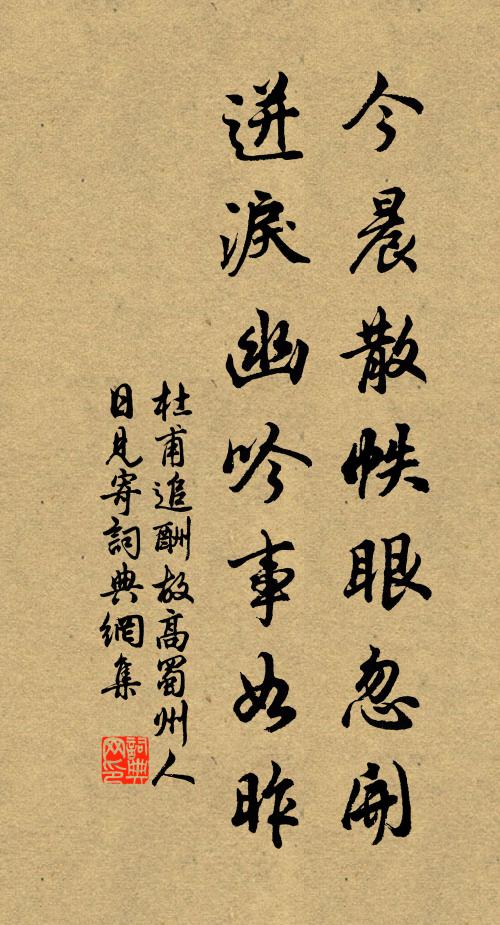 今晨散帙眼忽開
迸淚幽吟事如昨
杜甫追酬故高蜀州人
日見寄詞典網集
詞典網印